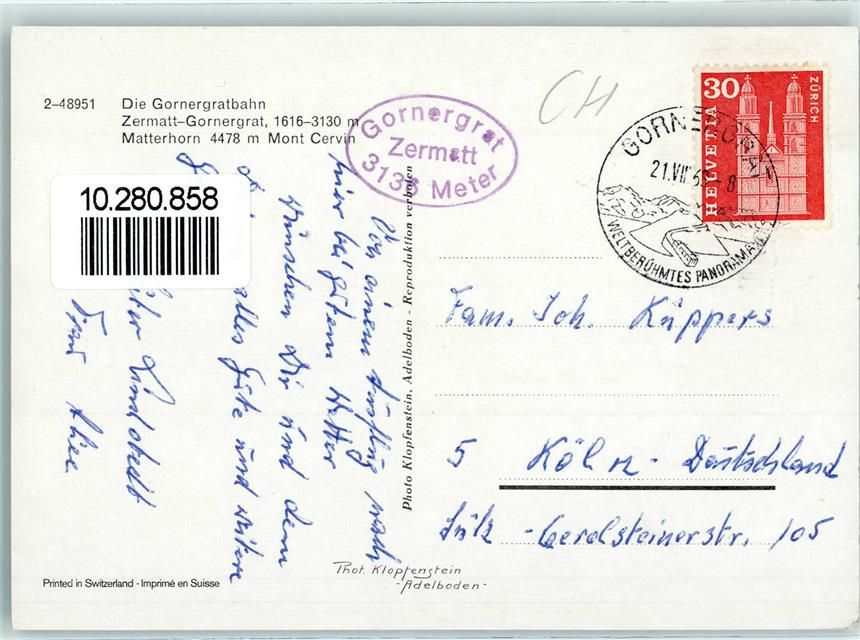 2-48951 Die Gornergratbahn
Zermatt-Gornergrat, 1616-3130 m
Matterhorn 4478 m Mont Cervin
Gornergrat
Zermatt
3135 Meter
CH
30
HELVETIA
ZÜRICH
GORNERGRAT
21.VII.6 -8
WELTBERÜHMTES PANORAMA
10.280.858
Von einem Ausflug nach
hier bei gutem Wetter
wünschen Dir und dem
alles Gute und weitere
Lindstedt
Frau
Photo Klopfenstein, Adelboden - Reproduktion verboten
Fam. Joh. Küppers
5 Köln - Deutschland
Sülz - Gerolsteinerstr. 105
Phot. Klopfenstein
-Adelboden-
Printed in Switzerland - Imprimé en Suisse